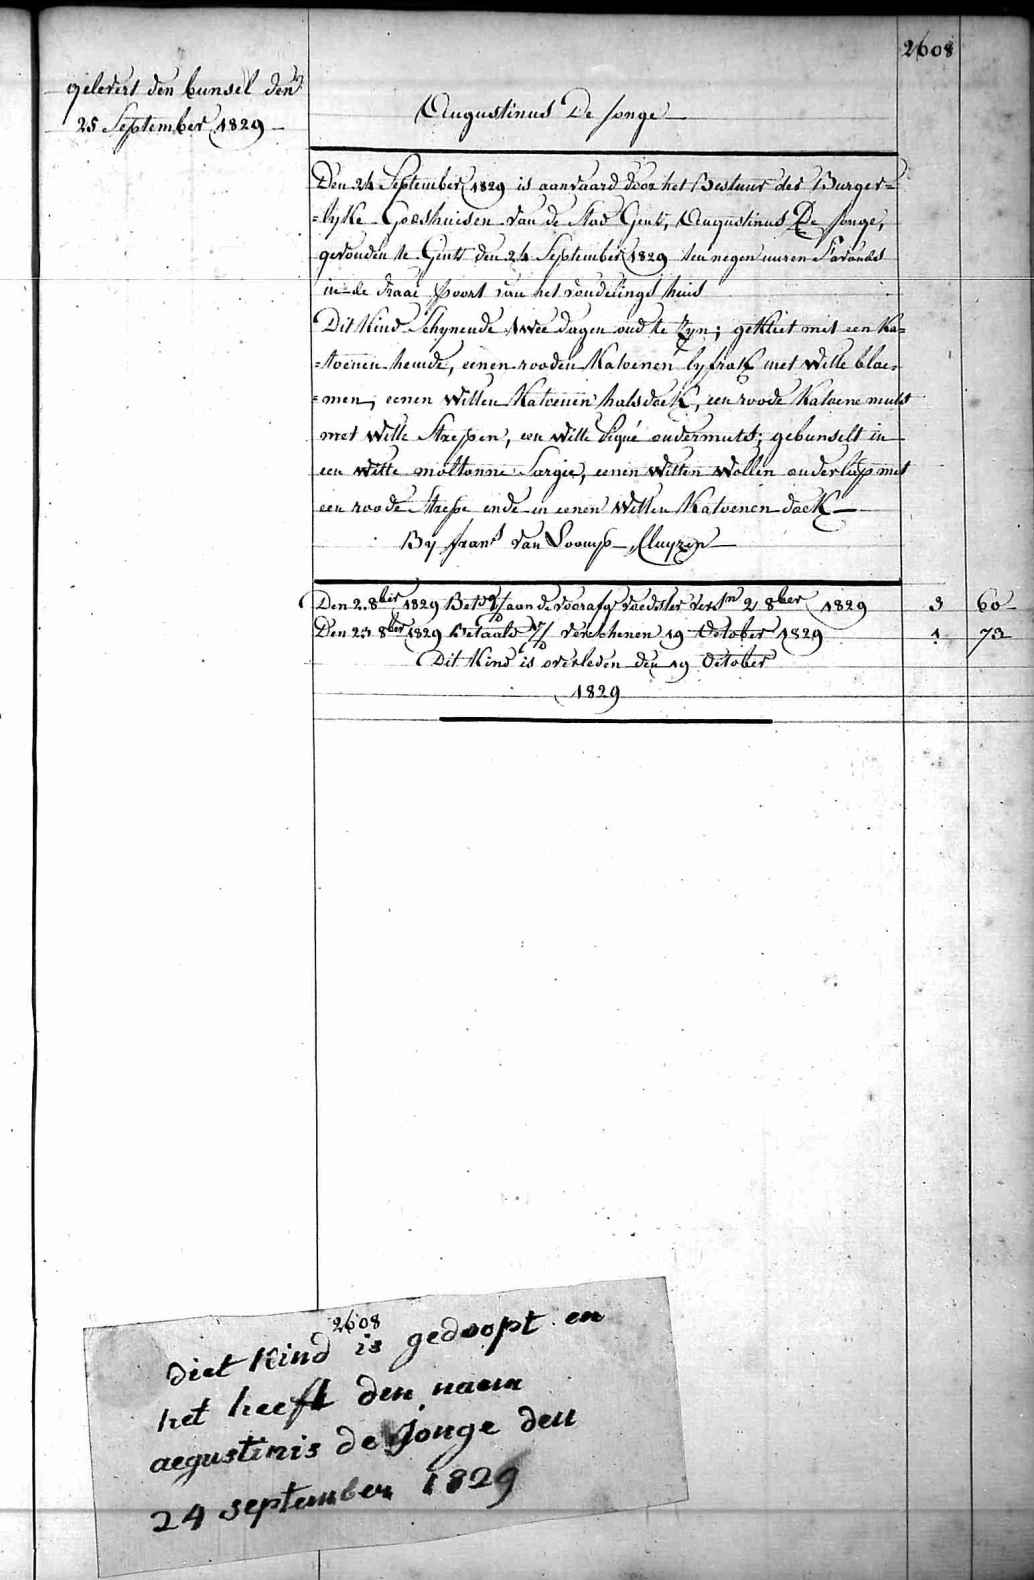 2608
gelevert den bunsel den
25 September 1829
Augustinus De Jonge
Den 24 September 1829 is aanvaard door het Bestuur der Burger=
=lyke Godshuisen van de Stad Gent, Augustinus De Jonge,
gevonden te Gent den 24 September 1829 ten negen uuren S'avonds
in de draai poort van het vondelings huis
Dit Kind Schynende twee dagen oud te Zyn; gekleet met een ka=
=toenen hemde, eenen rooden Katoenen lyfrok met Witte bloe=
=men, eenen Witten Katoenen halsdoek, een roode Katoene muts
met Witte Strepen, een Witte Piqué ondermuts; gebunselt in
een Witte moltonne Sargie, eenen Witten Wollen onderlap met
een roode Strepe ende in eenen Witten Katoenen doek
By frans van Looucp Cluyzen
Den 2. 8ber 1829 Bet aan de voorafg voedster vers 2 8ber 1829 3 60
Den 23 8ber 1829 Betaald verschenen 19 October 1829 1 73
Dit Kind is overleden den 19 October
1829
2608
diet kind is gedoopt en
het heeft den naem
aegustinis de Jonge den
24 september 1829